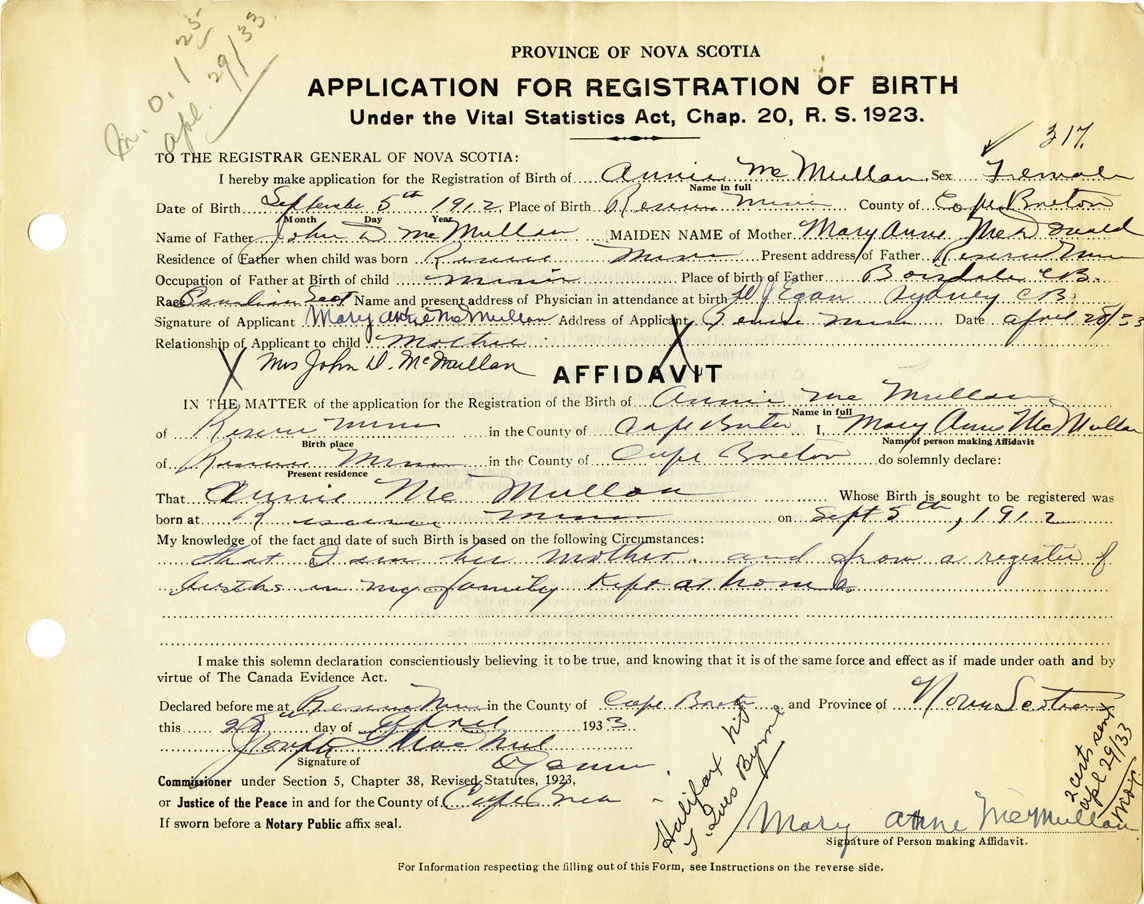 m. O. 1 25
apl. 29/33
PROVINCE OF NOVA SCOTIA
APPLICATION FOR REGISTRATION OF BIRTH
Under the Vital Statistics Act, Chap. 20, R. S. 1923.
317.
TO THE REGISTRAR GENERAL OF NOVA SCOTIA:
I hereby make application for the Registration of Birth of Annie McMullan Sex Female
Name in full
Date of Birth September 5th 1912 Place of Birth Reserve Mines County of Cape Breton
Month Day Year
Name of Father John D McMullan MAIDEN NAME of Mother Mary Anne McDonald
Residence of Father when child was born Reserve Mines Present address of Father Reserve Mines
Occupation of Father at Birth of child miner Place of birth of Father Boisdale C.B.
Race Canadian Scot Name and present address of Physician in attendance at birth J Egan Sydney C B.
Signature of Applicant Mary Anne McMullan Address of Applicant Reserve Mines Date april 28/33
Relationship of Applicant to child Mother
X Mrs John D. McMullan X
AFFIDAVIT
IN THE MATTER of the application for the Registration of the Birth of Annie McMullan
Name in full
of Reserve Mines in the County of Cape Breton I, Mary Anne McMullan
Birth place Name of person making Affidavit
of Reserve Mines in the County of Cape Breton do solemnly declare:
Present residence
That Annie McMullan Whose Birth is sought to be registered was
born at Reserve Mines on Sept 5th, 1912
My knowledge of the fact and date of such Birth is based on the following Circumstances:
that I am her mother. and from a register of
births in my family kept at home
I make this solemn declaration conscientiously believing it to be true, and knowing that it is of the same force and effect as if made under oath and by
virtue of The Canada Evidence Act.
Declared before me at Reserve Mines in the County of Cape Breton and Province of Nova Scotia
this 28 day of April 1933
Joseph MacNeil
Signature of
Commissioner under Section 5, Chapter 38, Revised Statutes, 1923,
or Justice of the Peace in and for the County of Cape Bre
If sworn before a Notary Public affix seal.
Halifax
Byrne
2 certs sent
apl 29/33
Mary Anne McMullan
Signature of Person making Affidavit.
For Information respecting the filling out of this Form, see Instructions on the reverse side.